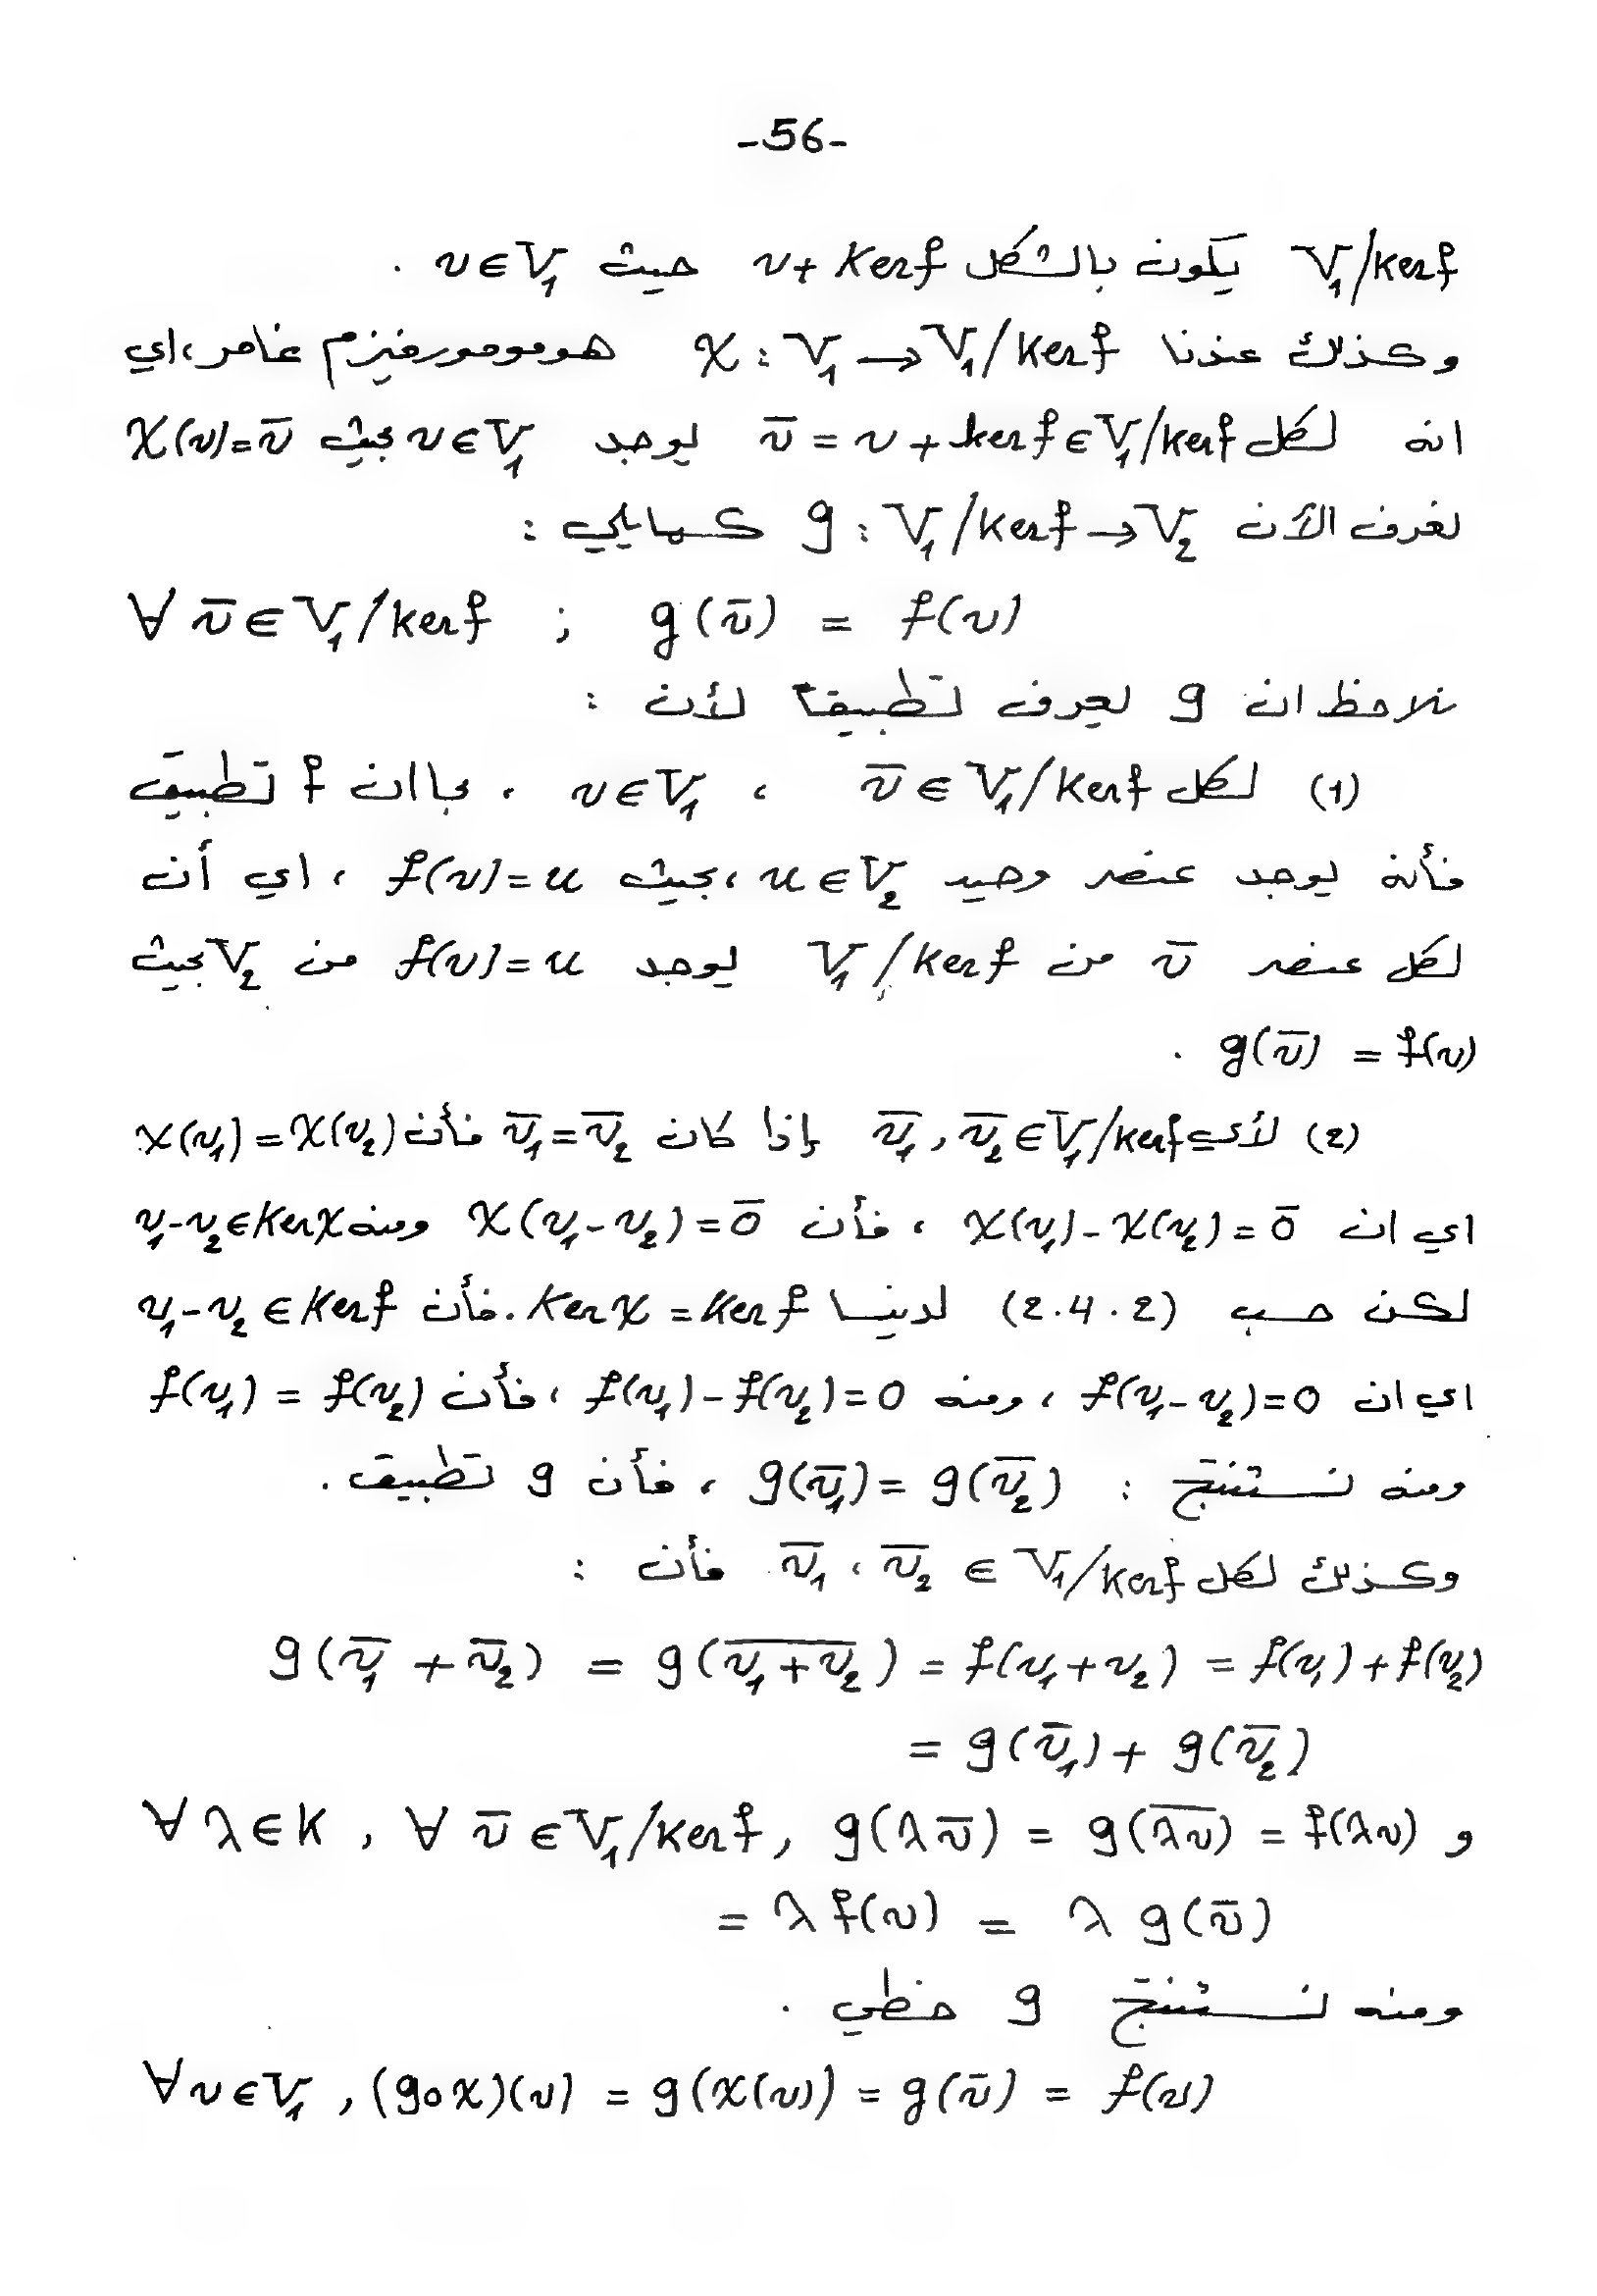 -56-
V₁/kerf يكون بالشكل v + Kerf حيث v ∈ V₁ .
وكذلك عندنا χ : V₁ → V₁/Kerf هومومورفيزم غامر، اي
انه لكل v̄ = v + kerf ∈ V₁/kerf يوجد v ∈ V₁ بحيث χ(v) = v̄
نعرف الآن g : V₁/kerf → V₂ كمايلي :
∀ v̄ ∈ V₁/kerf ; g(v̄) = f(v)
نلاحظ ان g تعرف تطبيقاً لأن :
(1) لكل v̄ ∈ V₁/Kerf ، v ∈ V₁ ، بما ان f تطبيق
فأنه يوجد عنصر وحيد u ∈ V₂ ، بحيث f(v) = u ، اي أن
لكل عنصر v̄ من V₁/Kerf يوجد f(v) = u من V₂ بحيث
g(v̄) = f(v) .
(2) لأي v̄₁ , v̄₂ ∈ V₁/kerf إذا كان v̄₁ = v̄₂ فأن χ(v₁) = χ(v₂)
اي ان χ(v₁) - χ(v₂) = 0̄ ، فأن χ(v₁ - v₂) = 0̄ ومنه v₁ - v₂ ∈ Ker χ
لكن حسب (2.4.2) لدينا Ker χ = Kerf . فأن v₁ - v₂ ∈ Kerf
اي ان f(v₁ - v₂) = 0 ، ومنه f(v₁) - f(v₂) = 0 ، فأن f(v₁) = f(v₂)
ومنه نستنتج : g(v̄₁) = g(v̄₂) ، فأن g تطبيق .
وكذلك لكل v̄₁ ، v̄₂ ∈ V₁/kerf فأن :
g(v̄₁ + v̄₂) = g(v̅₁̅ ̅+̅ ̅v̅₂) = f(v₁ + v₂) = f(v₁) + f(v₂)
= g(v̄₁) + g(v̄₂)
و ∀ λ ∈ K , ∀ v̄ ∈ V₁/Kerf , g(λ v̄) = g(λ̅v̅) = f(λv)
= λ f(v) = λ g(v̄)
ومنه نستنتج g خطي .
∀ v ∈ V₁ , (g∘χ)(v) = g(χ(v)) = g(v̄) = f(v)